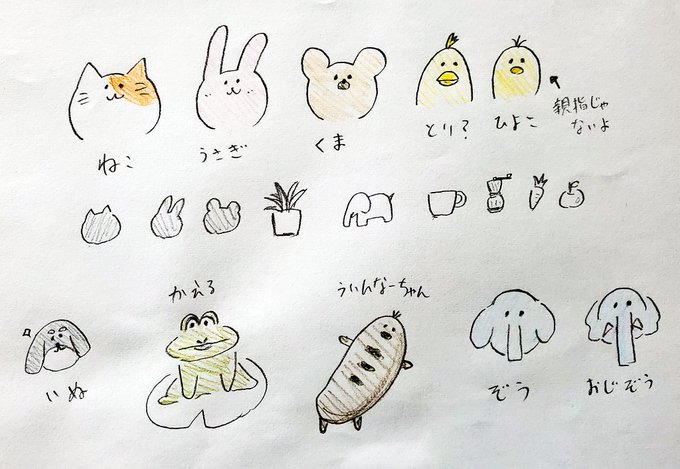 ねこ
うさぎ
くま
とり？
ひよこ
親指じゃ
ないよ
かえる
ういんなーちゃん
いぬ
ぞう
おじぞう